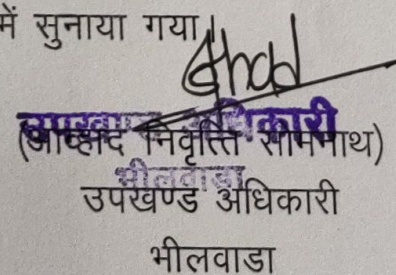 में सुनाया गया।
उपखण्ड अधिकारी
(आव्हाद निवृत्ति सोमनाथ)
भीलवाडा
उपखण्ड अधिकारी
भीलवाडा